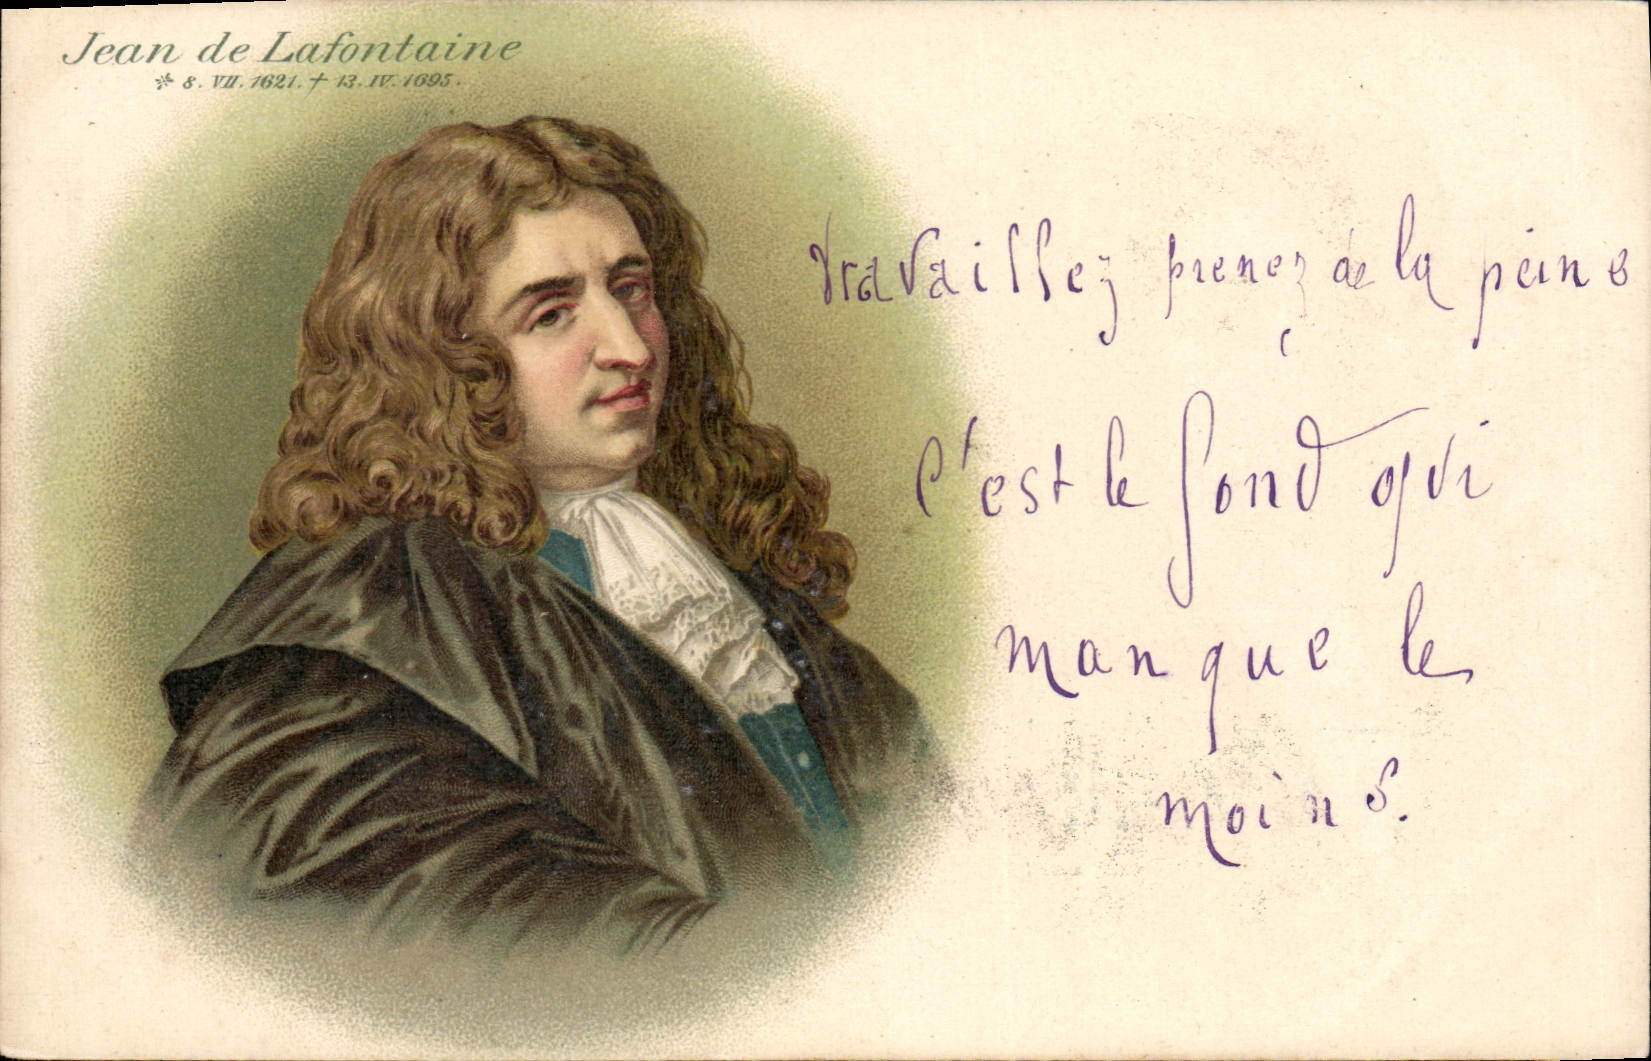 Jean de Lafontaine
* 8. VII. 1621. † 13. IV. 1695.
travaillez prenez de la peine
c'est le fond qui
manque le
moins.